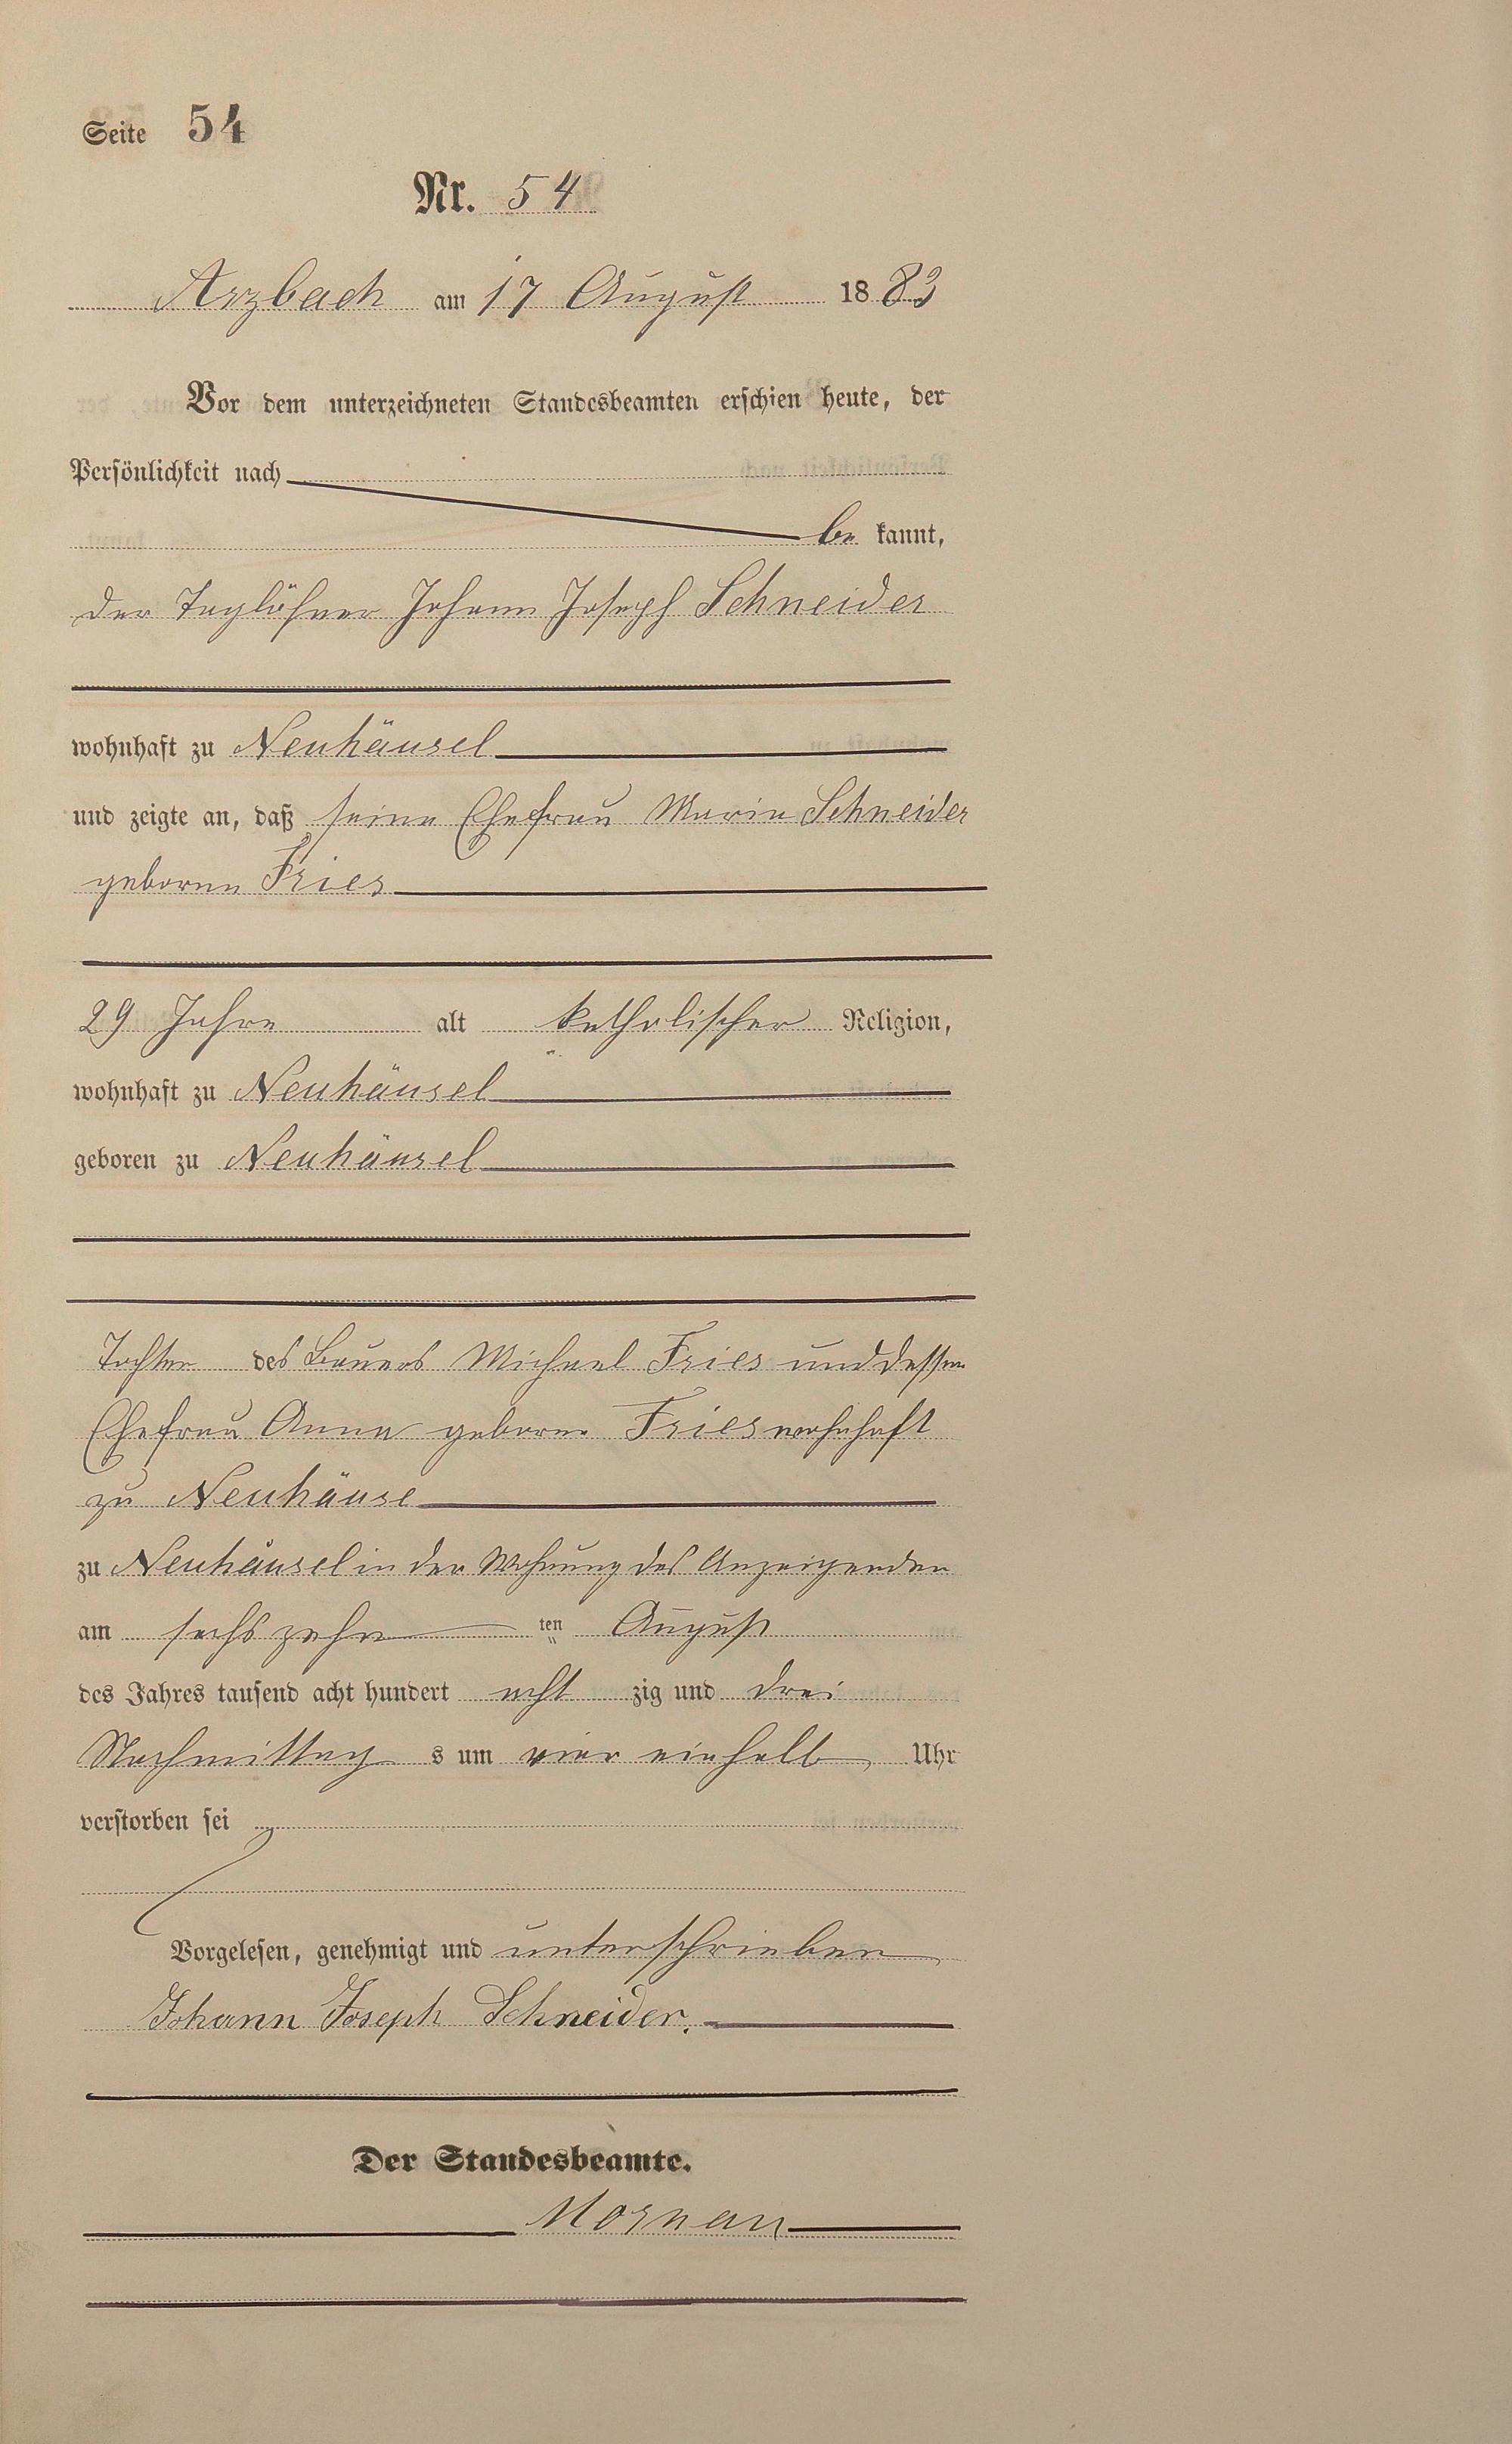 Seite 54
Nr. 54
Arzbach am 17 August 1883
Vor dem unterzeichneten Standesbeamten erschien heute, der
Persönlichkeit nach
be kannt,
der Taglöhner Johann Joseph Schneider
wohnhaft zu Neuhäusel
und zeigte an, daß seine Ehefrau Maria Schneider
geborne Fries
29 Jahre alt katholischer Religion,
wohnhaft zu Neuhäusel
geboren zu Neuhäusel
Tochter des Bauers Michael Fries und dessen
Ehefrau Anna geborne Fries wohnhaft
zu Neuhäuse
zu Neuhäusel in der Wohnung des Anzeigenden
am sechszehn ten August
des Jahres tausend acht hundert acht zig und drei
Nachmittag s um vier einhalb Uhr
verstorben sei
Vorgelesen, genehmigt und unterschrieben
Johann Joseph Schneider.
Der Standesbeamte.